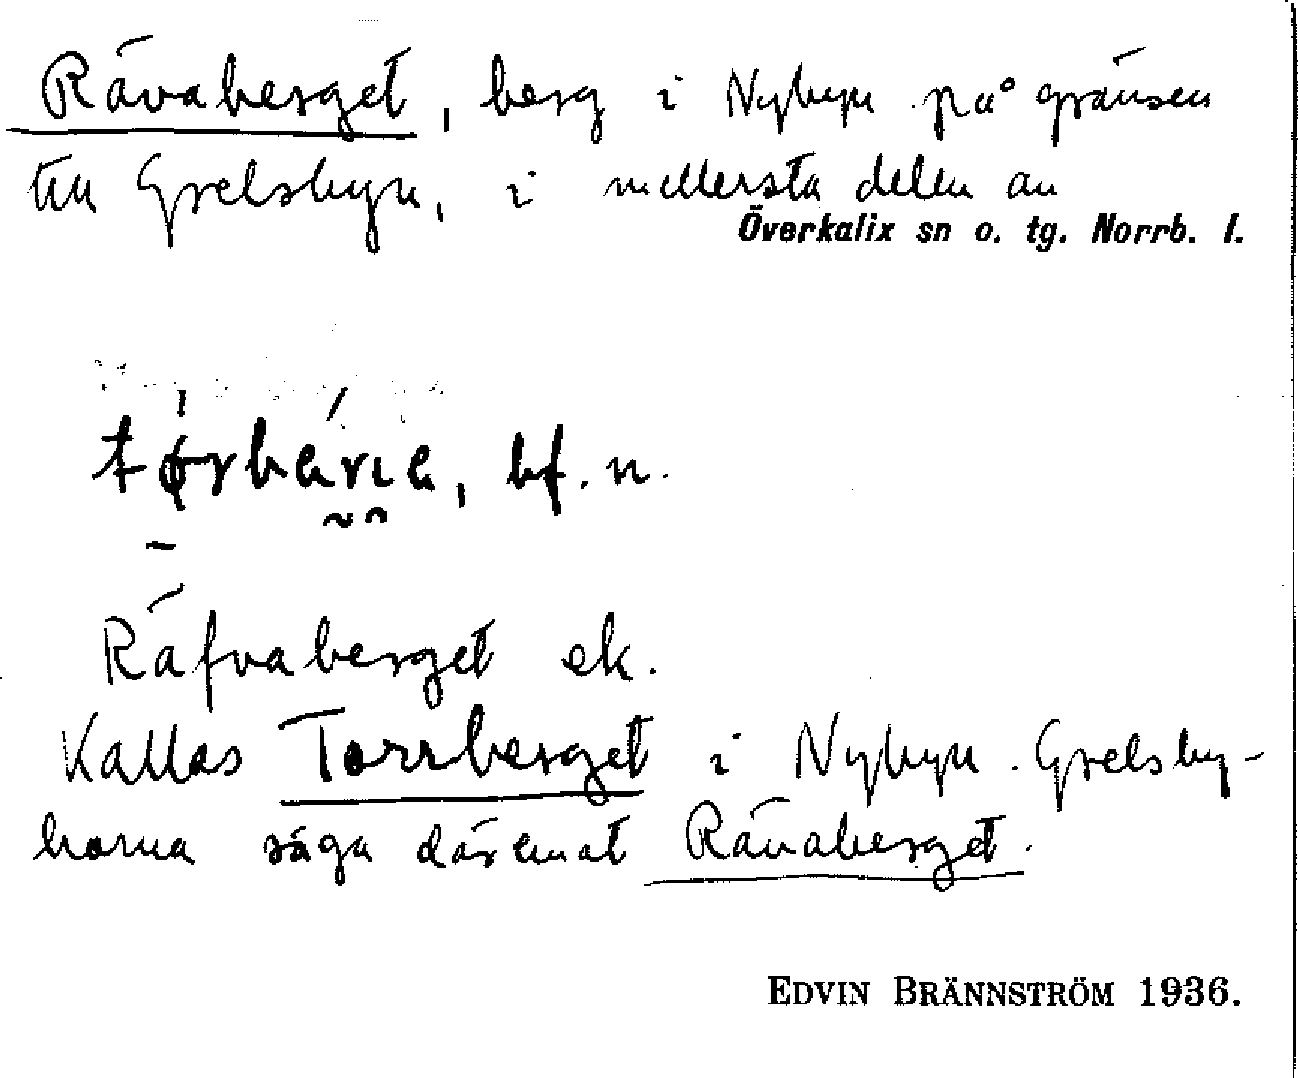 Rävaberget, berg i Nybyn på gränsen
till Grelsbyn, i mellersta delen av
Överkalix sn o. tg. Norrb. l.
bf. n.
Räfvaberget ek.
Kallas Torrberget i Nybyn. Grelsby-
borna säga däremot Rävaberget.
EDVIN BRÄNNSTRÖM 1936.